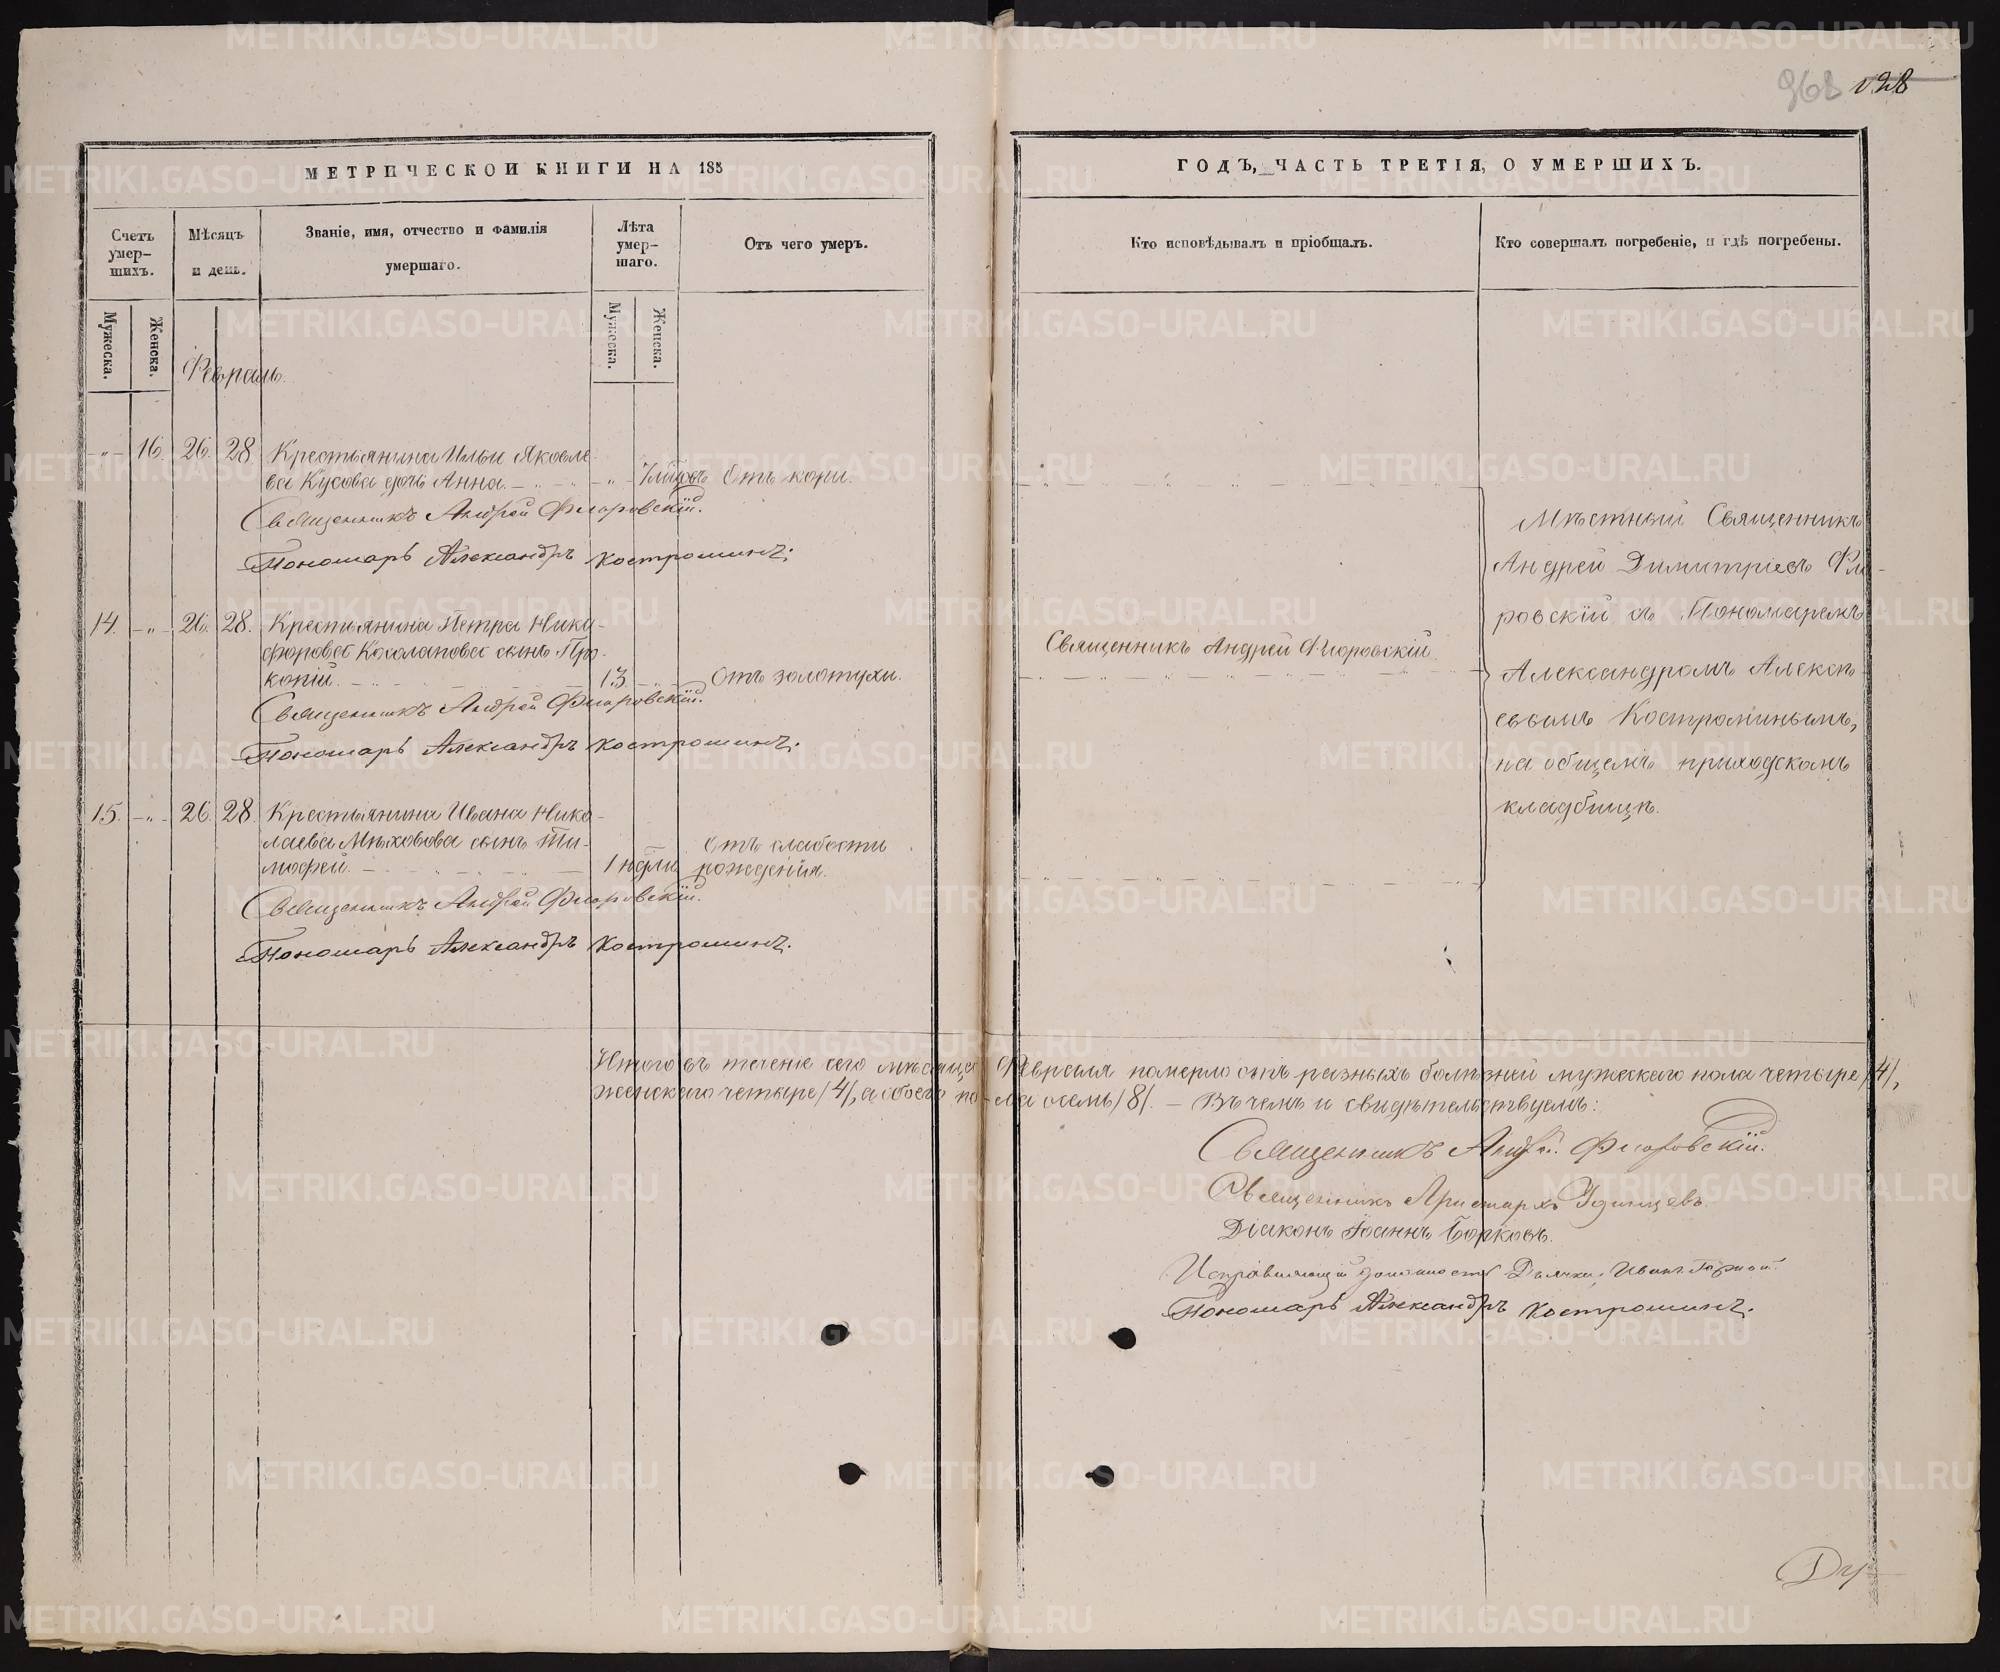 968 128
МЕТРИЧЕСКОЙ КНИГИ НА 185
ГОДЪ, ЧАСТЬ ТРЕТІЯ, О УМЕРШИХЪ.
Счетъ умер-шихъ.
Мѣсяцъ и день.
Званіе, имя, отчество и фамилія умершаго.
Лѣта умер-шаго.
Отъ чего умеръ.
Кто исповѣдывалъ и пріобщалъ.
Кто совершалъ погребеніе, и гдѣ погребены.
Мужеска.
Женска.
Мужеска.
Женска.
Февраль.
-"- 16. 26. 28. Крестьянина Ильи Яковле-
ва Кусова дочь Анна. -"- Отъ кори.
Священникъ Андрей Флоровскій.
Пономарь Александръ Костроминъ.
14. -"- 26. 28. Крестьянина Петра Ники-
форова Косолапова сынъ Про-
копій. 13. -"- Отъ золотухи.
Священникъ Андрей Флоровскій.
Пономарь Александръ Костроминъ.
15. -"- 26. 28. Крестьянина Ивана Нико-
лаева сынъ Ти-
мофей. 1 ндѣли Отъ слабости
рожденія.
Священникъ Андрей Флоровскій.
Пономарь Александръ Костроминъ.
Священникъ Андрей Флоровскій.
Мѣстный Священникъ
Андрей Димитріевъ Фло-
ровскій съ Пономаремъ
Александромъ Алексѣ-
евымъ Костроминымъ,
на общемъ приходскомъ
кладбищѣ.
Итого въ теченіе сего мѣсяца Февраля померло отъ разныхъ болѣзней мужескаго пола четыре /4/,
женскаго четыре /4/, а обоего по-ла осемь /8/. - Въ чемъ и свидѣтельствуемъ:
Священникъ Андрей Флоровскій.
Священникъ Аристархъ Удинцевъ.
Діаконъ Іоаннъ Борковъ.
Исправляющій должность Дьячка, Иванъ
Пономарь Александръ Костроминъ.
METRIKI.GASO-URAL.RU